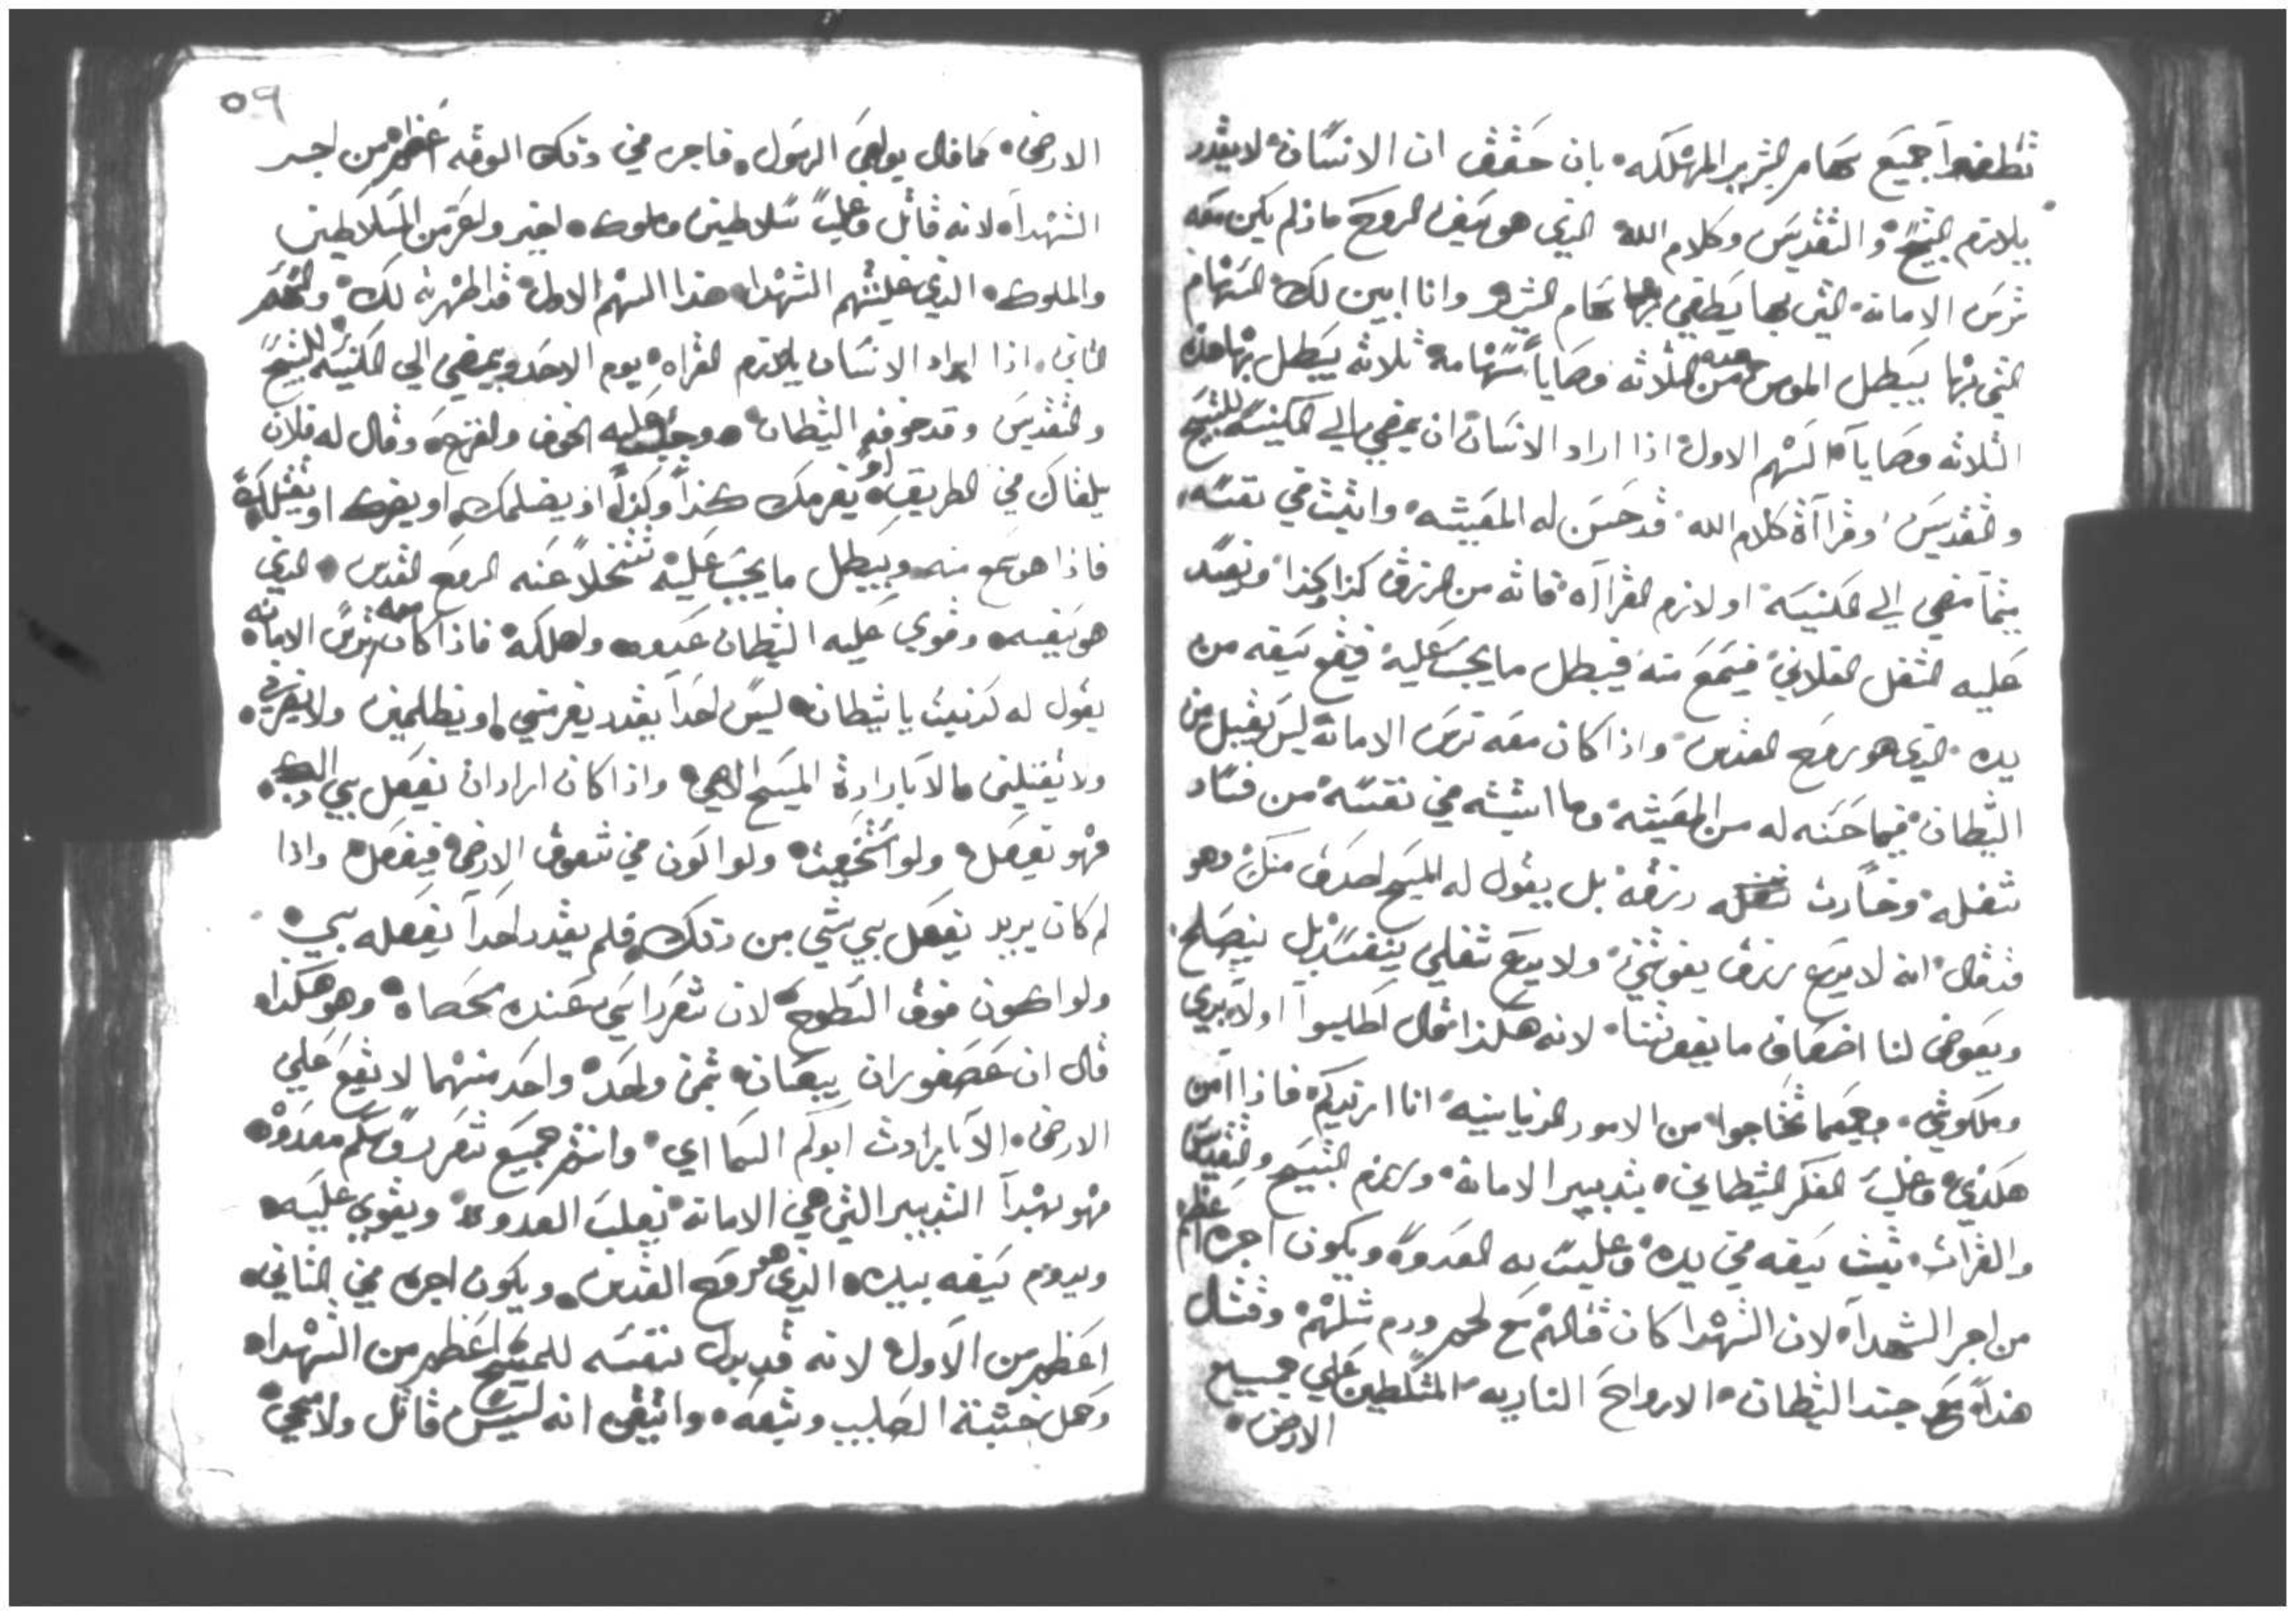 تطفوا جميع سهام الشرير المهلكه بان حقق ان الانسان لا يقدر
يلازم التسبيح والتقديس وكلام الله الذي هو سيف الروح ماذلم يكن معه
ترس الامانه التي بها يطفي بها سهام الشرير وانا ابين لك السهام
التي بها يبطل المومن من الثلاثه وصايا سهامه ثلاثه يبطل بها هذه
الثلاثه وصايا السهم الاول اذا اراد الانسان ان يمضي الي الكنيسه للتسبيح
والتقديس وقراآة كلام الله قد حسن له المعيشه واثبت في نفسه
متما مضي الي الكنيسه او لازم القراآه فاته من الرزق كذا وكذا وتفسد
عليه الشغل الفلاني فيسمع منه فيبطل ما يجب عليه فيقع سيفه من
يده الذي هو روح القدس واذا كان معه ترس الامانه ليس يقبل من
الشيطان فيما حسنه له من المعيشه وما اثبته في نفسه من فساد
شغله وخسارت رزقه بل يقول له المسيح اصدق منك وهو
قد قال انه لا يدع رزق يفوتني ولا يدع شغلي ينفسد بل ينصلح
ويعوض لنا اضعاف ما يفوتنا لانه هكذا قال اطلبوا اولا بري
وملكوتي وجميعما تحتاجوا من الامور الدنيانيه انا ازيدكم فاذا امن
هكذي وغلب الفكر الشيطاني بتدبير الامانه ولازم التسبيح والتقديس
والقرات ثبت سيفه في يده وغلب به العدو ويكون اجره اعظم
من اجر الشهداء لان الشهدا كان قتالهم مع لحم ودم مثلهم وقتال
هذا مع جند الشيطان الارواح الناريه المتسلطين علي جميع
الارض
٥٩
الارض كما قال بولص الرسول فاجره في دلك الوقت اعظم من اجر
الشهداء لانه قاتل وغلب سلاطين وملوك اخير واعز من السلاطين
والملوك الذي غلبتهم الشهدا هذا السهم الاول قد اظهرته لك والسهم
الثاني اذا اراد الانسان يلازم القراه يوم الاحد ويمضي الي الكنيسه للتسبيح
والتقديس وقد خوفه الشيطان وجلب عليه الخوف والفزع وقال له فلان
يلقاك في الطريق او يغرمك كذا وكذا اذ يضلمك او يضربك او يقتلك
فاذا هو سمع منه ويبطل ما يجب عليه تتخلا عنه الروح القدس الذي
هو سيفه وقوي عليه الشيطان عدوه واهلكه فاذا كان معه ترس الامانه
يقول له كذبت يا شيطان ليس احدا يقدر يغرمني او يظلمني ولا يضربني
ولا يقتلني الا بارادة المسيح الاهي واذا كان اراد ان يفعل بي ذلك
فهو يفعل ولو استخبيت ولو اكون في شقوق الارض فيفعل واذا
لم كان يريد يفعل بي شي من دلك فلم يقدر احدا يفعله بي
ولو اكون فوق السطوح لان شعر راسي عنده محصاه وهو هكذا
قال ان عصفوران يباعان بثمن واحد واحد منهما لا يقع علي
الارض الا بارادت ابوكم السماىي وانتم جميع شعر روسكم معدوه
فهو بهدا التدبير التي هي الامانه يغلب العدو ويقوي عليه
ويدوم سيفه بيده الذي هو روح القدس ويكون اجره في الثاني
اعظم من الاول لانه قد بدل نفسه للمسيح اعظم من الشهداء
وحمل خشبة الصليب وتبعه وايقن انه ليس قاتل ولا محيي